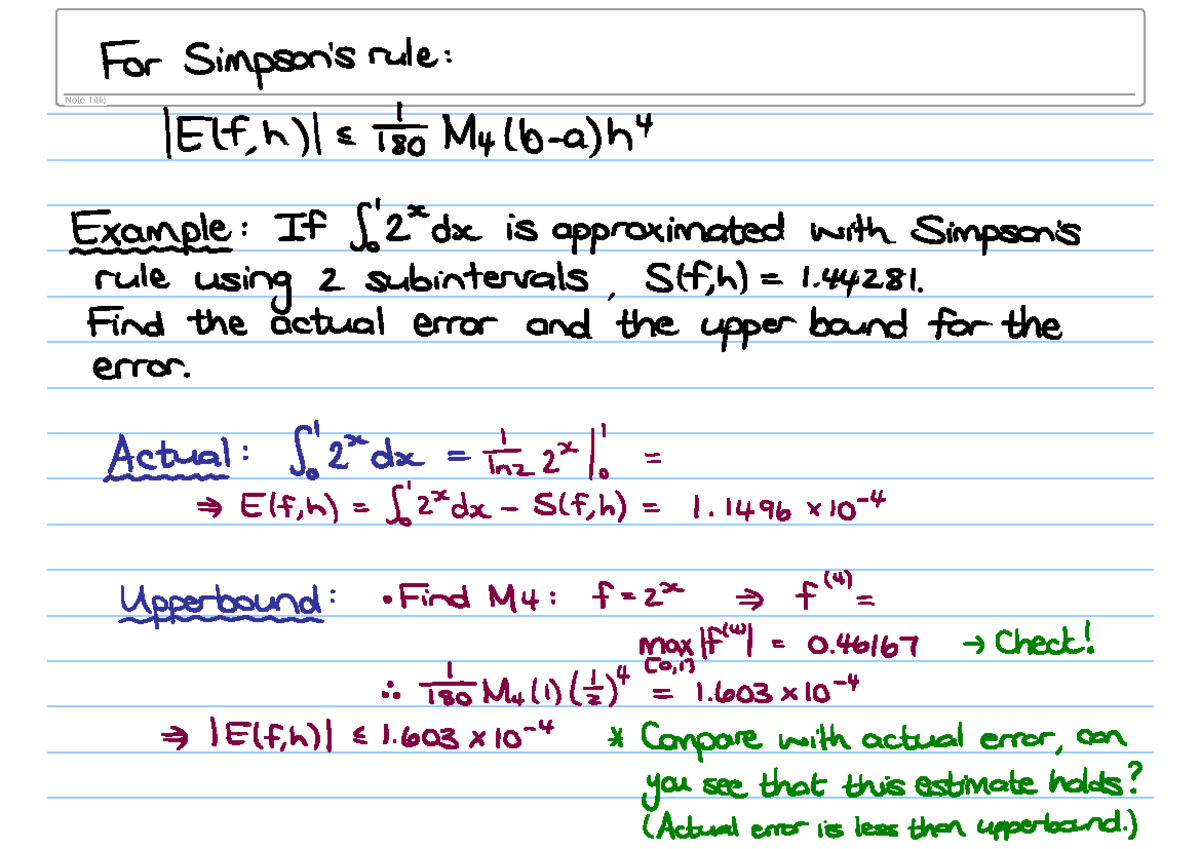 For Simpson's rule:
Note Title
|E(f,h)| ≤ 1/180 M₄(b-a)h⁴
Example: If ∫₀¹ 2ˣ dx is approximated with Simpson's
rule using 2 subintervals, S(f,h) = 1.44281.
Find the actual error and the upper bound for the
error.
Actual: ∫₀¹ 2ˣ dx = 1/ln2 2ˣ |₀¹ =
⇒ E(f,h) = ∫₀¹ 2ˣ dx - S(f,h) = 1.1496 × 10⁻⁴
Upperbound: • Find M4: f = 2ˣ ⇒ f⁽⁴⁾ =
max |f⁽⁴⁾| = 0.46167 → Check!
[0,1]
∴ 1/180 M₄(1)(1/2)⁴ = 1.603 × 10⁻⁴
⇒ |E(f,h)| ≤ 1.603 × 10⁻⁴ * Compare with actual error, can
you see that this estimate holds?
(Actual error is less then upperbound.)